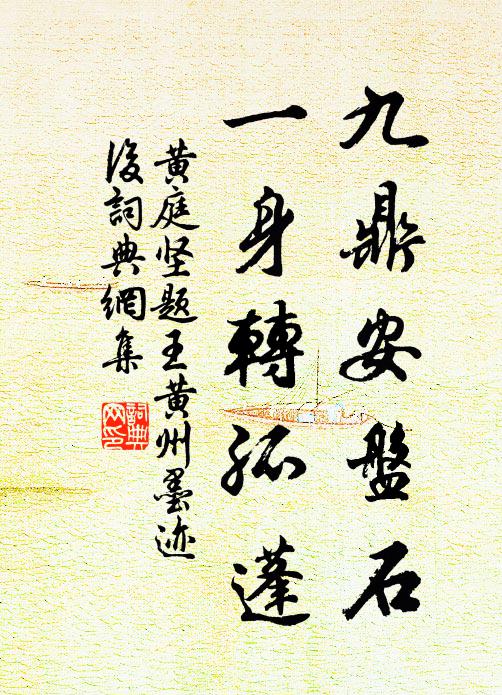 九鼎安盤石
一身轉孤蓬
黄庭坚题王黄州墨迹
後詞典網集
詞典
网印